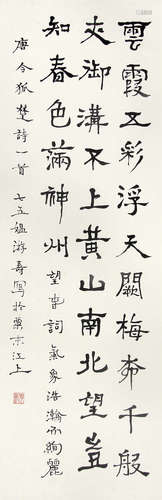 雲霞五彩浮天闕梅桺千般
夾御溝不上黃山南北望豈
知春色滿神州 望春詞氣象浩瀚而絢麗
唐令狐楚詩一首 七五媼游壽寫於粟末江上